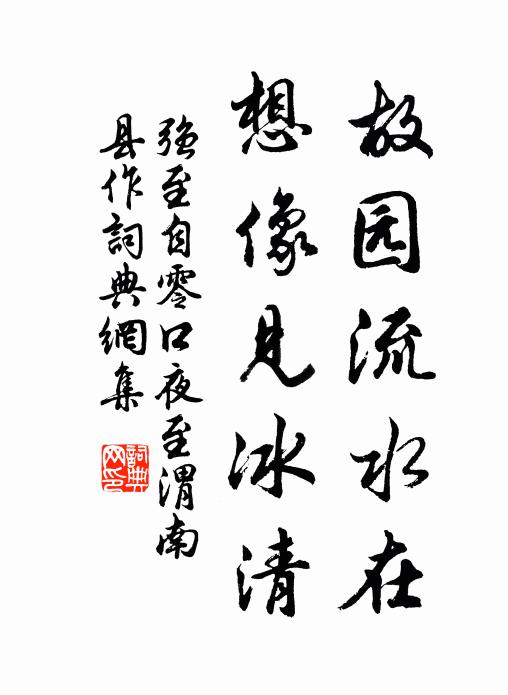 故园流水在
想像见冰清
强至自零口夜至渭南
县作詞典網集
詞典
网印